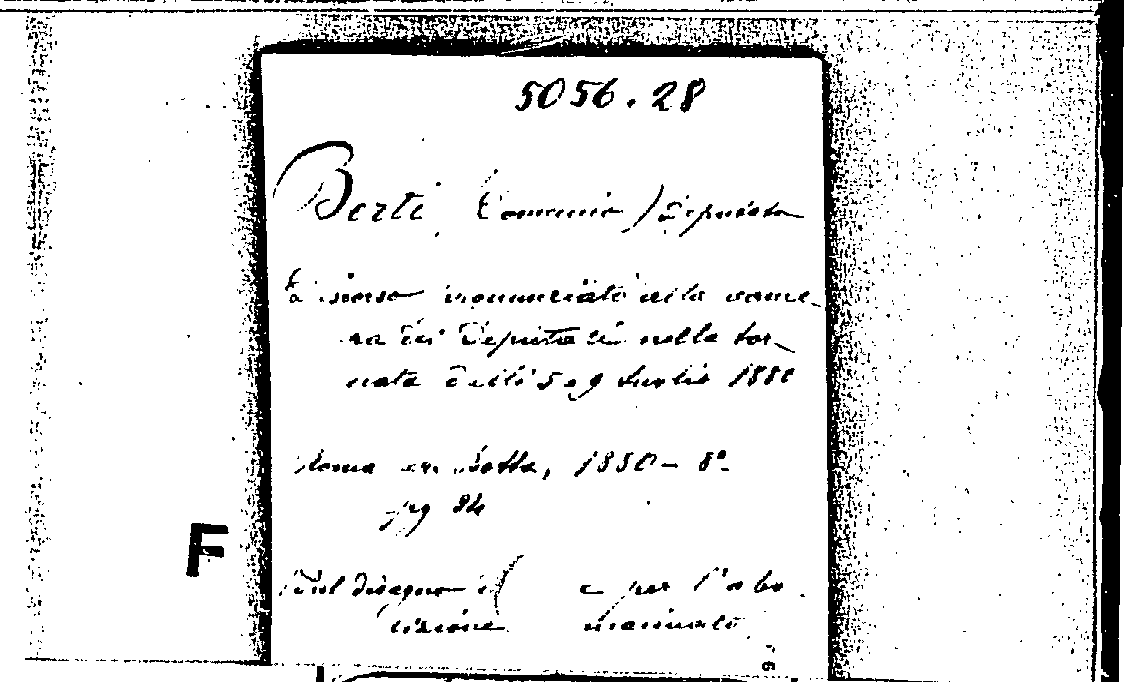 5056.28
Berti Domenico / Deputato
Discorso pronunciato nella came-
ra dei Deputati nella tor-
nata delli 5 e 9 Luglio 1880
Roma er. Botta, 1880 - 8º
pg 24
F
Sul disegno e per l'abo
lizione macinato